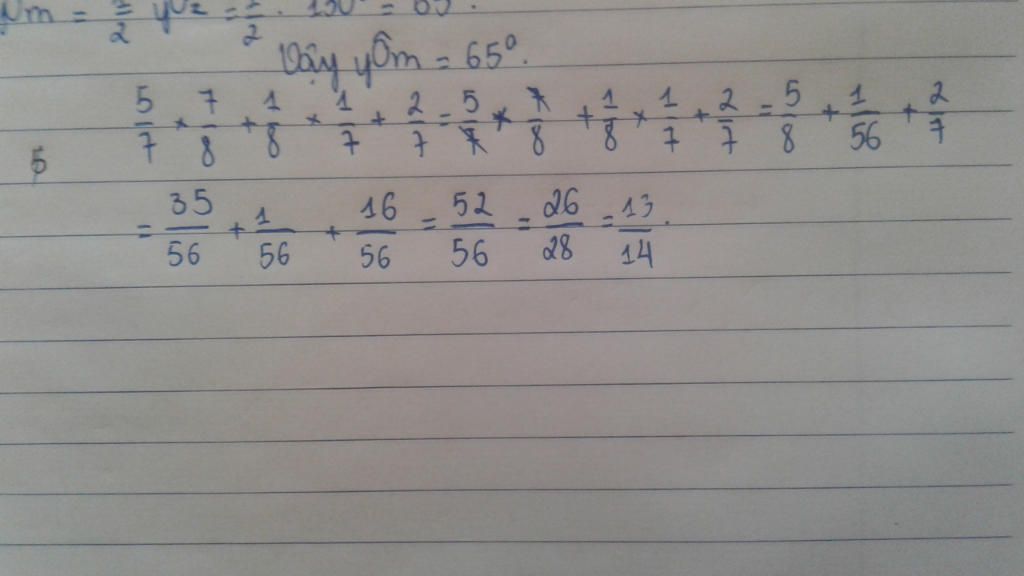 yÔm = 1/2 yÔz = 1/2 . 130° = 65°.
Vậy yÔm = 65°.
5/7 × 7/8 + 1/8 × 1/7 + 2/7 = 5/7 × 7/8 + 1/8 × 1/7 + 2/7 = 5/8 + 1/56 + 2/7
5
= 35/56 + 1/56 + 16/56 = 52/56 = 26/28 = 13/14.